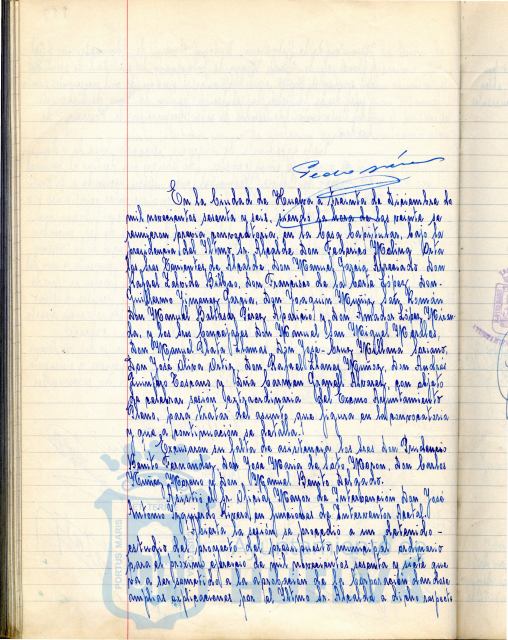 Pedro
En la Ciudad de Huelva a treinta de Diciembre de
mil novecientos sesenta y seis, siendo la hora de las veinte se
reunieron previa convocatoria, en la Casa Capitular, bajo la
presidencia del Iltmo. Sr. Alcalde Don Federico Molina Orta
los Sres Tenientes de Alcalde, Don Manuel García Don
Rafael Don Francisco de la Corte López, Don
Guillermo Jimenez Don Joaquín Muñiz Sáez Román
Don Manuel Perez Aparicio y Don Amador López
y los Sres Concejales Don Manuel San Miguel
Don Manuel Plata Llamas, Don José Cruz Millana
Don José Oliva Ortiz, Don Rafael Llanes Muñoz, Don Andrés
Quintero y Doña Carmen Alvarez, con objeto
de celebrar sesión Extraordinaria del Excmo Ayuntamiento
Pleno, para tratar del asunto que figura en la convocatoria
y que a continuación se detalla:
Excusaron su falta de asistencia los Sres don Prudencio
Benito Fernandez, don José María de Soto Moron, Don Carlos
Muñiz Moreno y Don Manuel Benito Delgado.
Asistió el Sr. Oficial Mayor de Intervención Don José
Rivera en funciones de Interventor Acctal.
Abierta la sesión se procedió a un detenido
estudio del proyecto de presupuesto municipal ordinario
para el próximo ejercicio de mil novecientos sesenta y siete que
va a ser sometido a la aprobación de la Corporación dandose
amplias explicaciones por el Iltmo Sr. Alcalde a dicho respecto
PORTUS MARIS